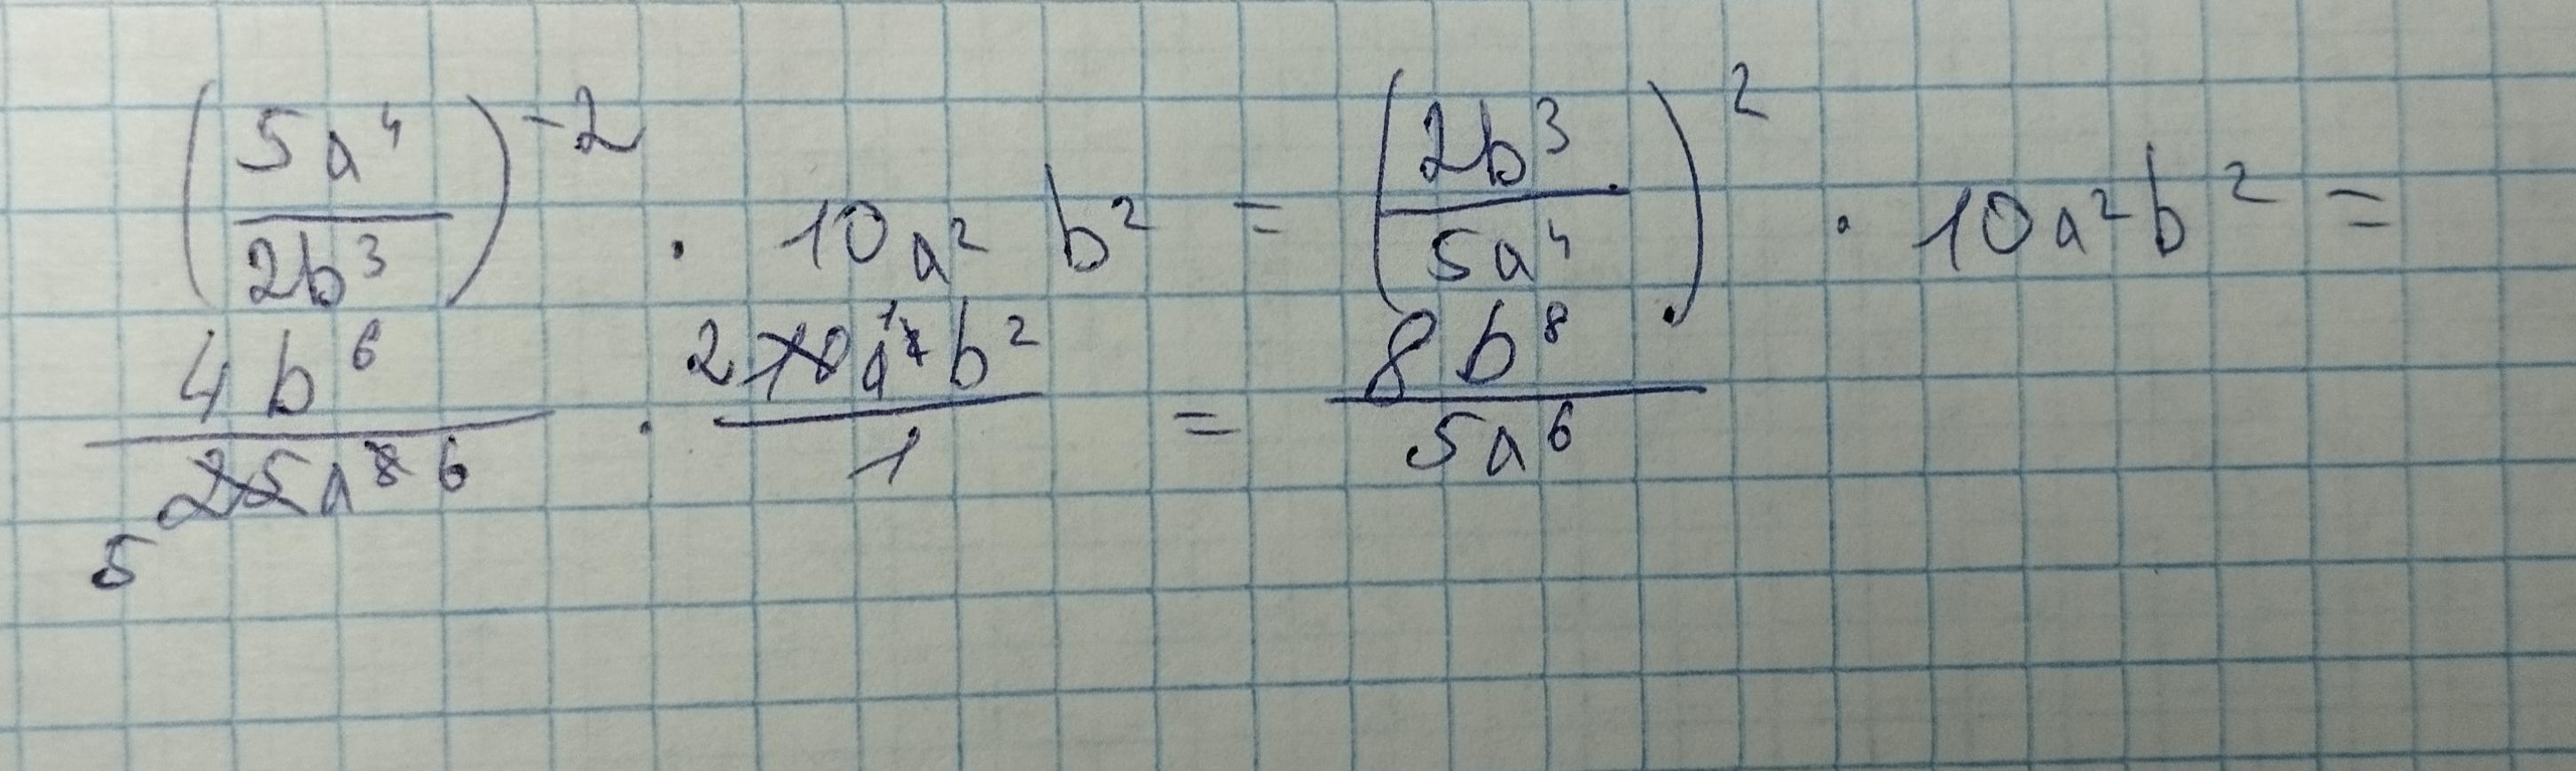 (5a⁴/2b³)⁻² · 10a² b² = (2b³/5a⁴)² · 10a²b² =
4b⁶/25a⁸ 6 5 · 2 10a² 1 b²/1 = 8b⁸/5a⁶